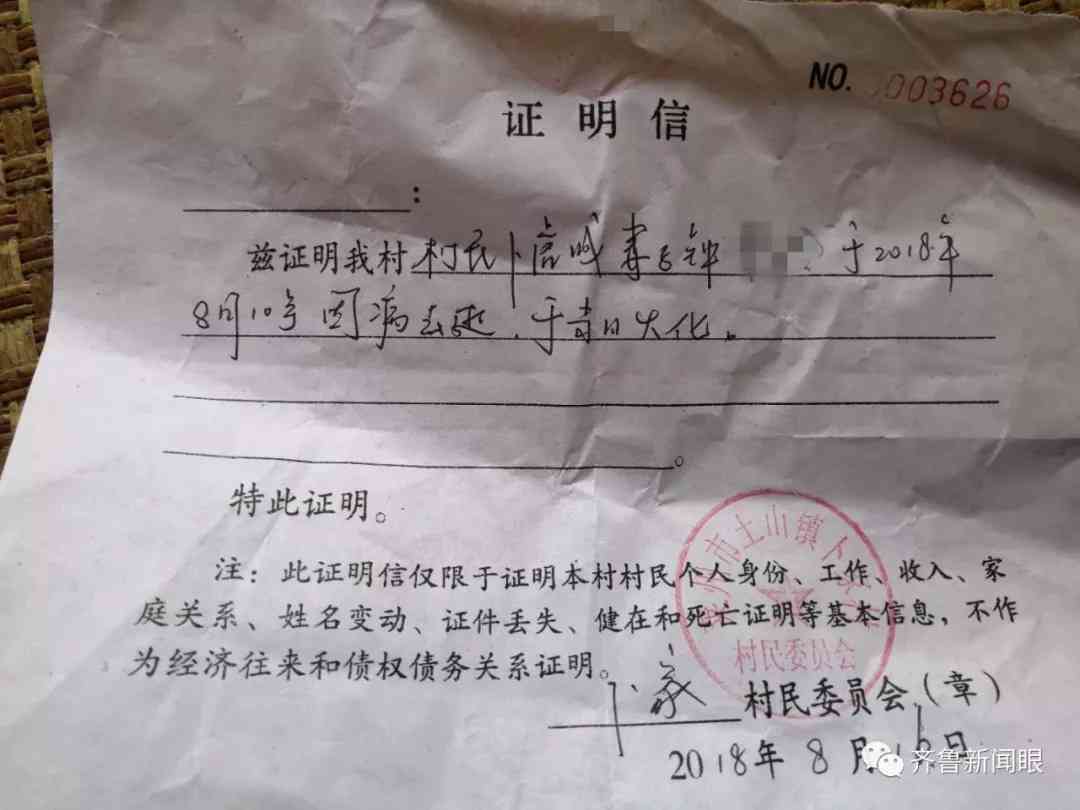 NO. 003626
证明信
：
兹证明我村村民卜 于2018年
8月10号因病去逝，于当日火化。
特此证明。
注：此证明信仅限于证明本村村民个人身份、工作、收入、家
庭关系、姓名变动、证件丢失、健在和死亡证明等基本信息，不作
为经济往来和债权债务关系证明。
州市土山镇卜
村民委员会
卜家 村民委员会（章）
2018年8月16日
齐鲁新闻眼